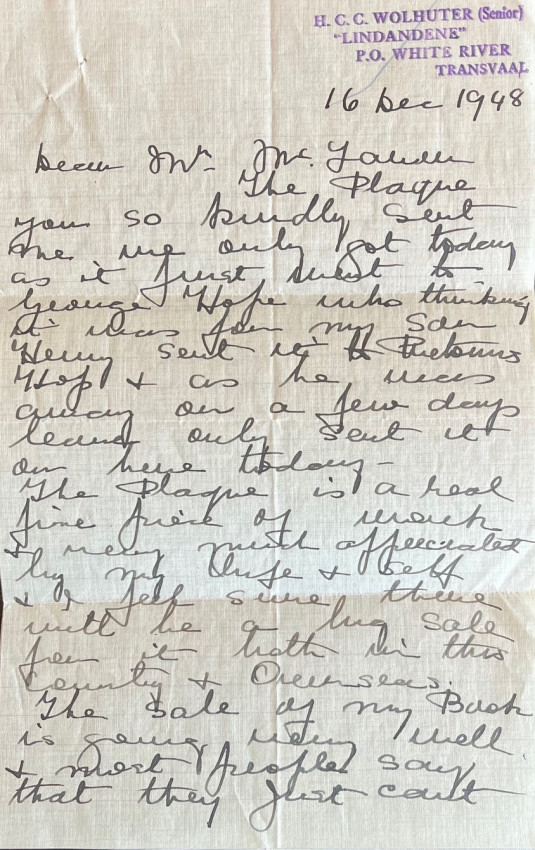 H. C. C. WOLHUTER (Senior)
"LINDANDENE"
P.O. WHITE RIVER
TRANSVAAL
16 Dec 1948
Dear Mr. Mc.
The Plaque
you so kindly sent
me we only got today
as it first went to
George Hope who thinking
it was for my Son
Henry sent it to Pretorius
Kop & as he was
away on a few days
leave only sent it
on here today –
The Plaque is a real
fine piece of work
& very much appreciated
by my Wife & Self
& I feel sure there
will be a big Sale
for it both in this
Country & Overseas.
The Sale of my Book
is going very well
& most people say
that they just can't